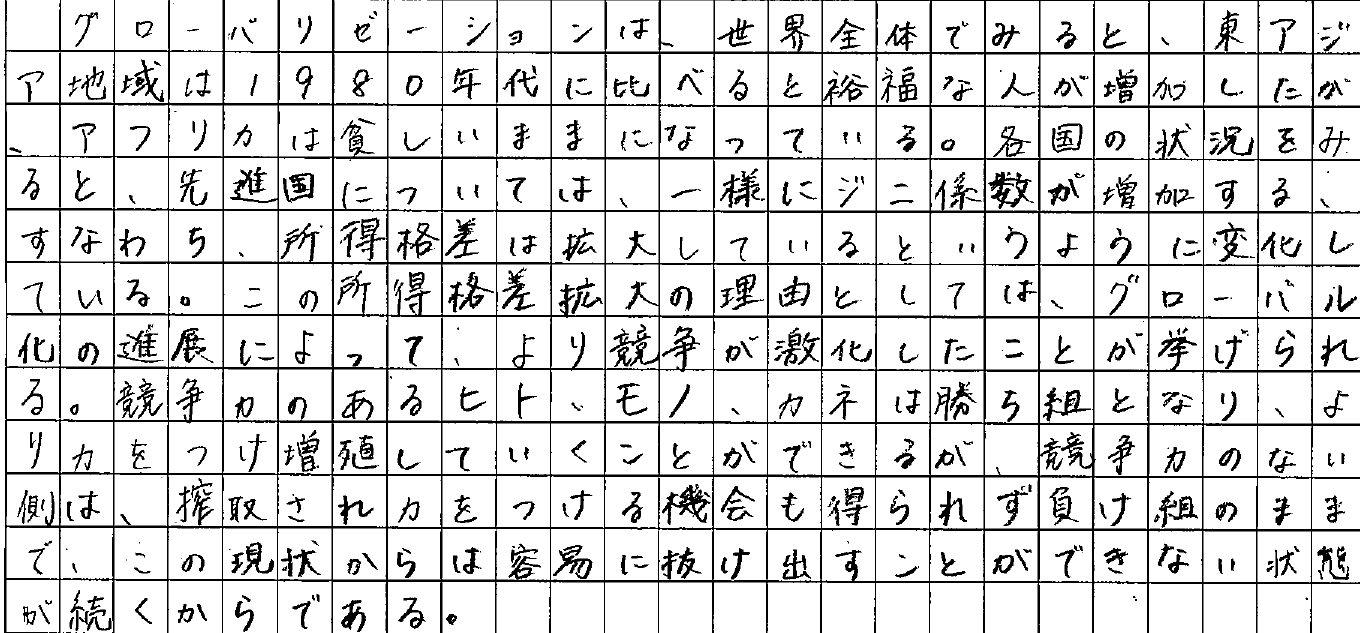 グローバリゼーションは、世界全体でみると、東アジ
ア地域は1980年代に比べると裕福な人が増加したが
、アフリカは貧しいままになっている。各国の状況をみ
ると、先進国については、一様にジニ係数が増加する、
すなわち、所得格差は拡大しているというように変化し
ている。この所得格差拡大の理由としては、グローバル
化の進展によって、より競争が激化したことが挙げられ
る。競争力のあるヒト、モノ、カネは勝ち組となり、よ
り力をつけ増殖していくことができるが、競争力のない
側は、搾取され力をつける機会も得られず負け組のまま
で、この現状からは容易に抜け出すことができない状態
が続くからである。